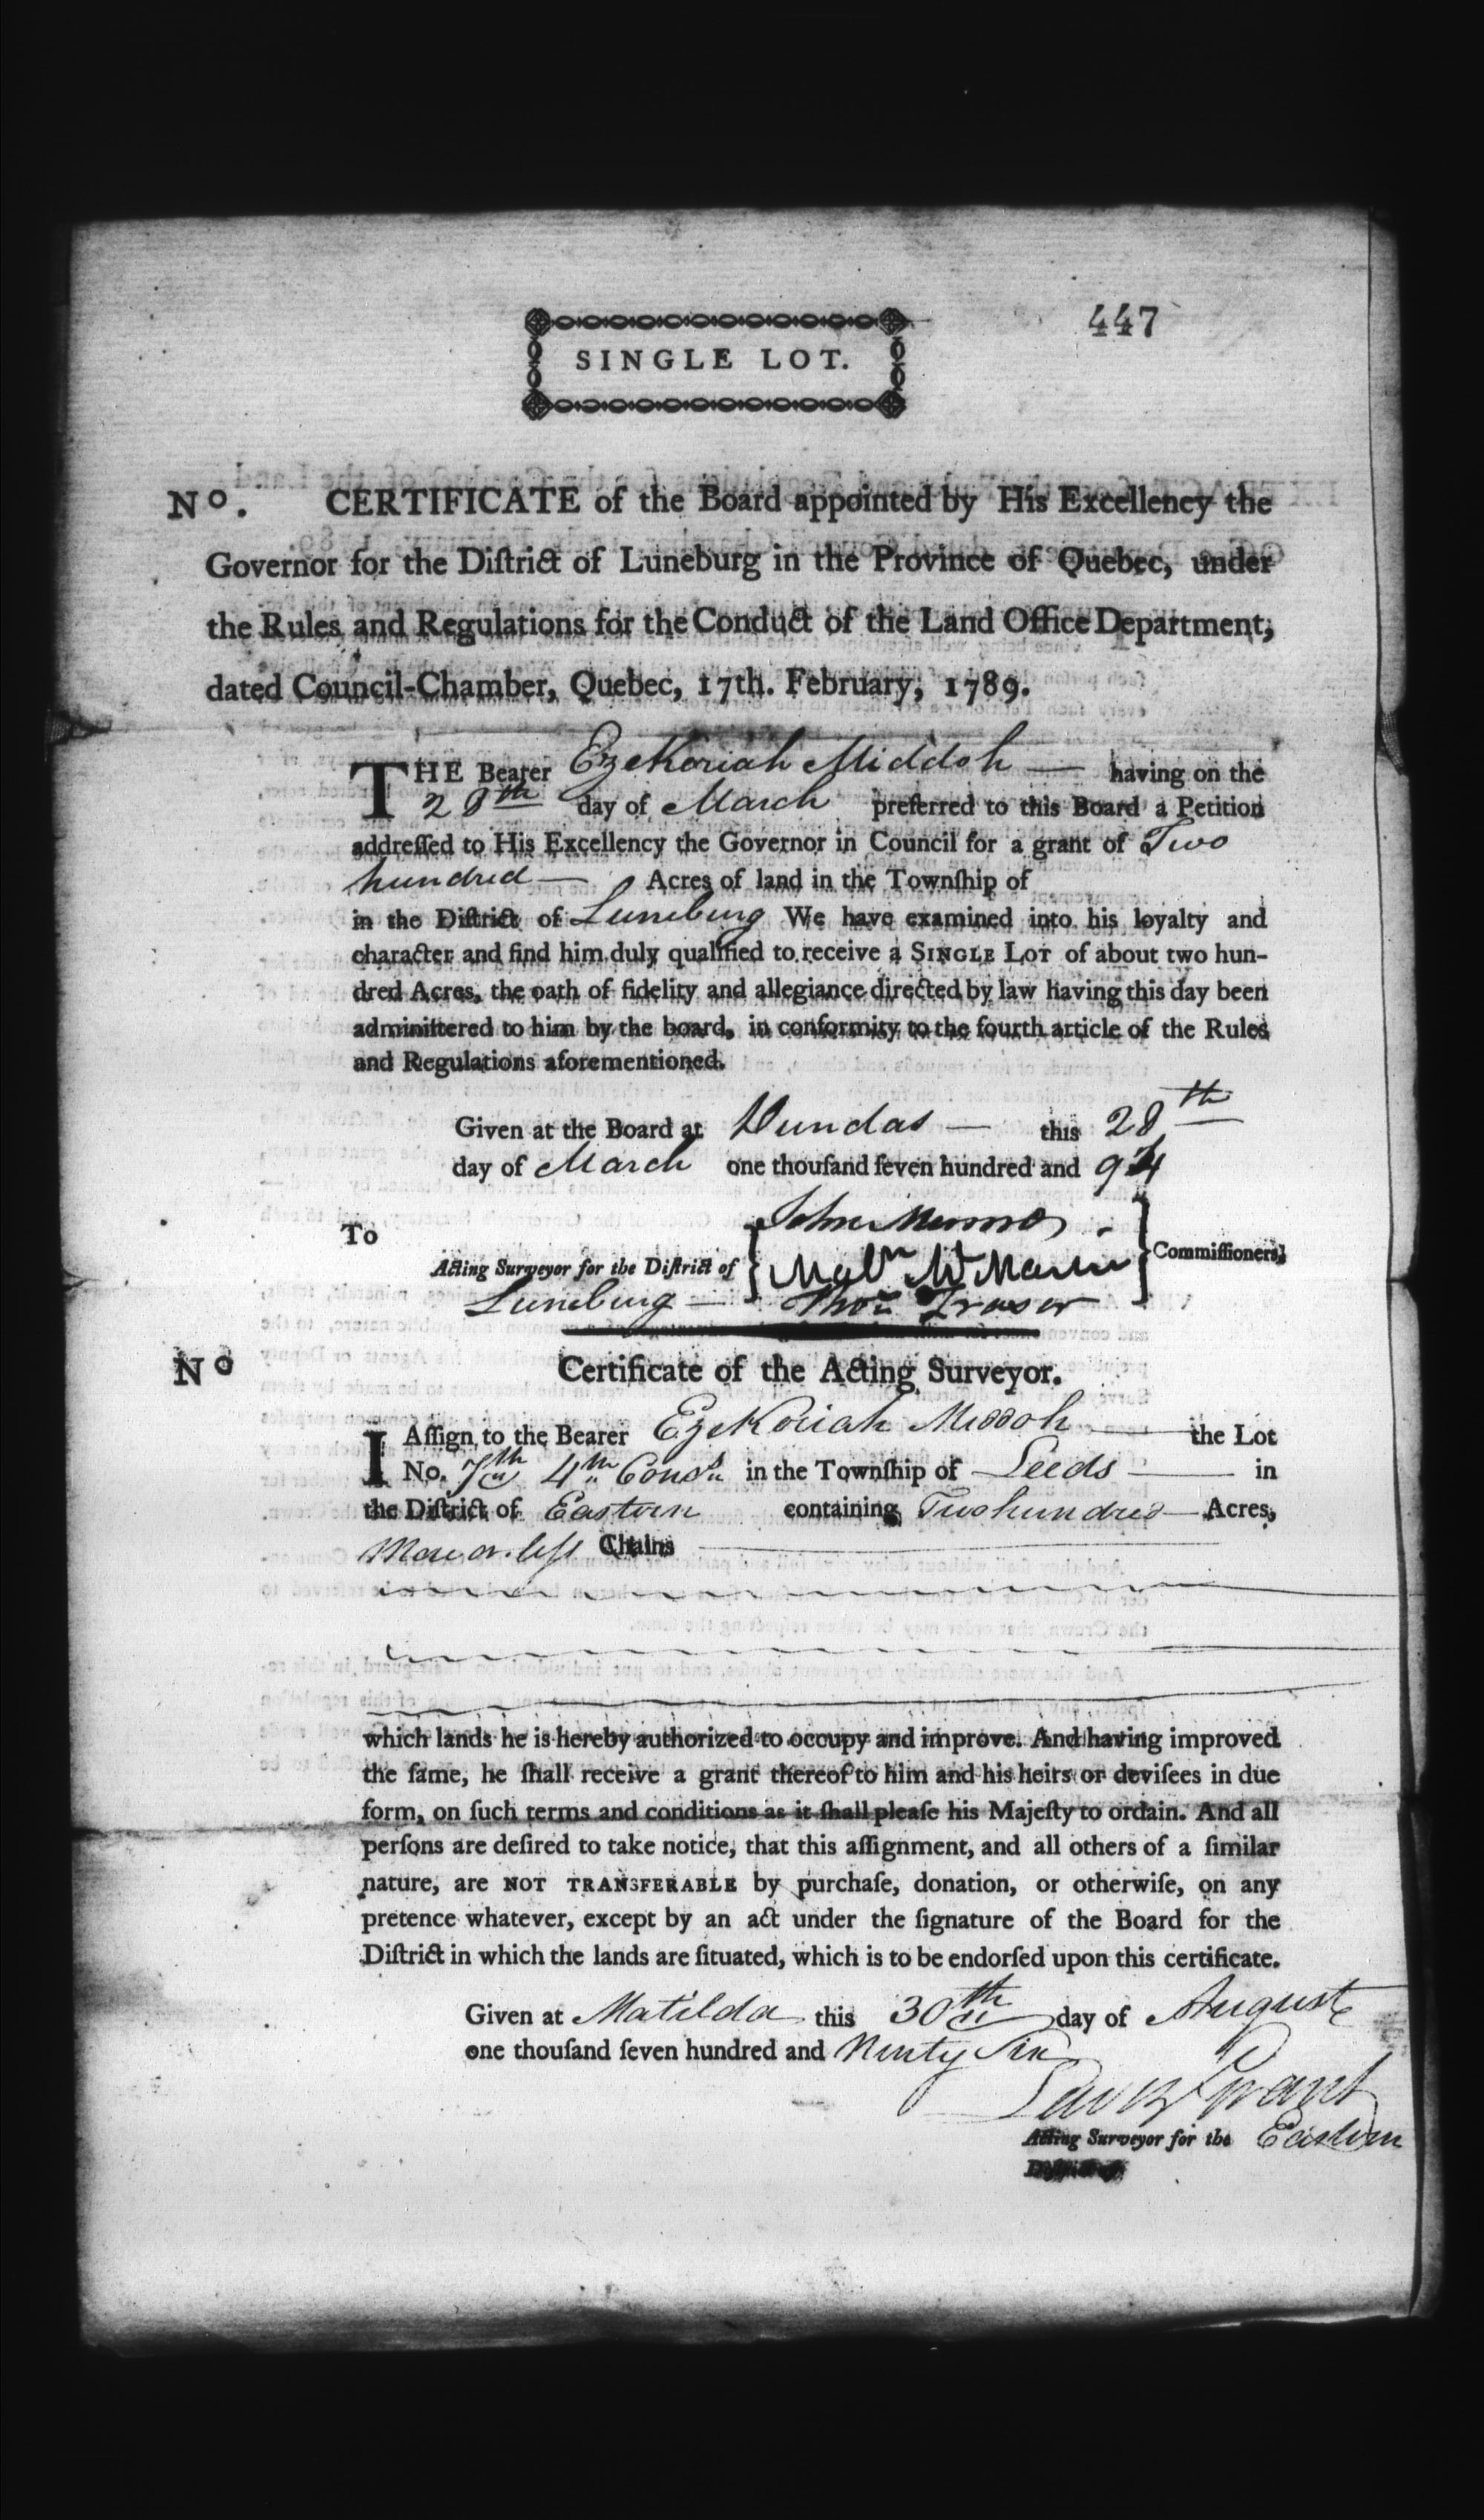 447
SINGLE LOT.
No. CERTIFICATE of the Board appointed by His Excellency the
Governor for the Diſtrict of Luneburg in the Province of Quebec, under
the Rules and Regulations for the Conduct of the Land Office Department,
dated Council-Chamber, Quebec, 17th. February, 1789.
THE Bearer Ezekoriah Middoh — having on the
28th day of March preferred to this Board a Petition
addreſſed to His Excellency the Governor in Council for a grant of Two
hundred — Acres of land in the Townſhip of
in the Diſtrict of Luneburg We have examined into his loyalty and
character and find him duly qualified to receive a SINGLE LOT of about two hun-
dred Acres, the oath of fidelity and allegiance directed by law having this day been
adminiſtered to him by the board, in conformity to the fourth article of the Rules
and Regulations aforementioned.
Given at the Board at Dundas — this 28th
day of March one thouſand ſeven hundred and 94
To John Munro
Acting Surveyor for the Diſtrict of Commiſſioners,
Luneburg — Thos Fraser
No Certificate of the Acting Surveyor.
I Aſſign to the Bearer Ezekoriah Middoh — the Lot
No. 7th 4th Consn in the Townſhip of Leeds — in
the Diſtrict of Eastern containing Two hundred — Acres,
More or leſs Chains
which lands he is hereby authorized to occupy and improve. And having improved
the ſame, he ſhall receive a grant thereof to him and his heirs or deviſees in due
form, on ſuch terms and conditions as it ſhall pleaſe his Majeſty to ordain. And all
perſons are deſired to take notice, that this aſſignment, and all others of a ſimilar
nature, are NOT TRANSFERABLE by purchaſe, donation, or otherwiſe, on any
pretence whatever, except by an act under the ſignature of the Board for the
Diſtrict in which the lands are ſituated, which is to be endorſed upon this certificate.
Given at Matilda this 30th day of August
one thouſand ſeven hundred and Ninty Six
Grant
Acting Surveyor for the Eastern